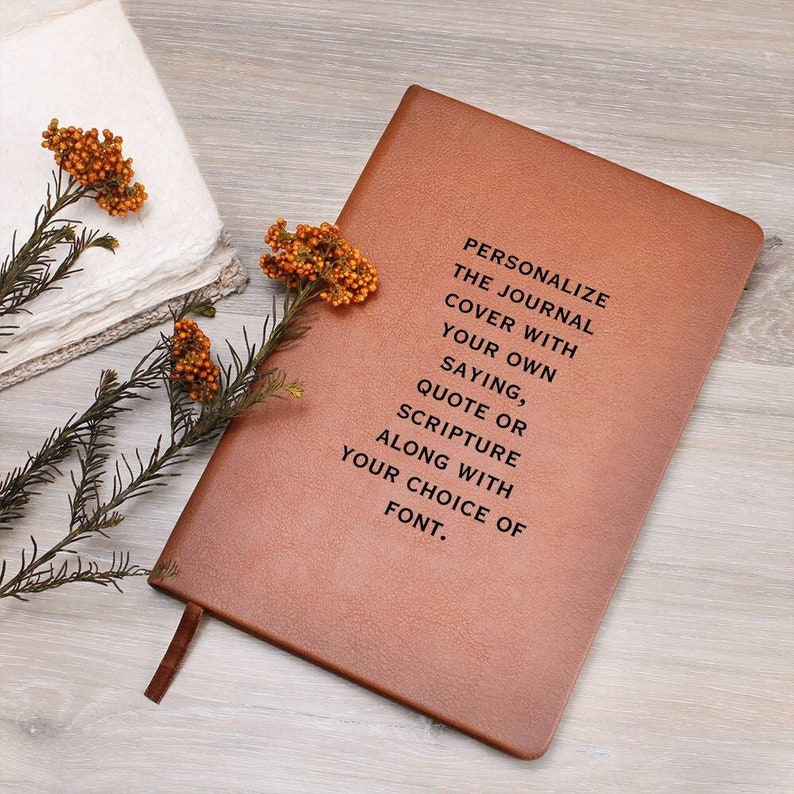 PERSONALIZE
THE JOURNAL
COVER WITH
YOUR OWN
SAYING,
QUOTE OR
SCRIPTURE
ALONG WITH
YOUR CHOICE OF
FONT.